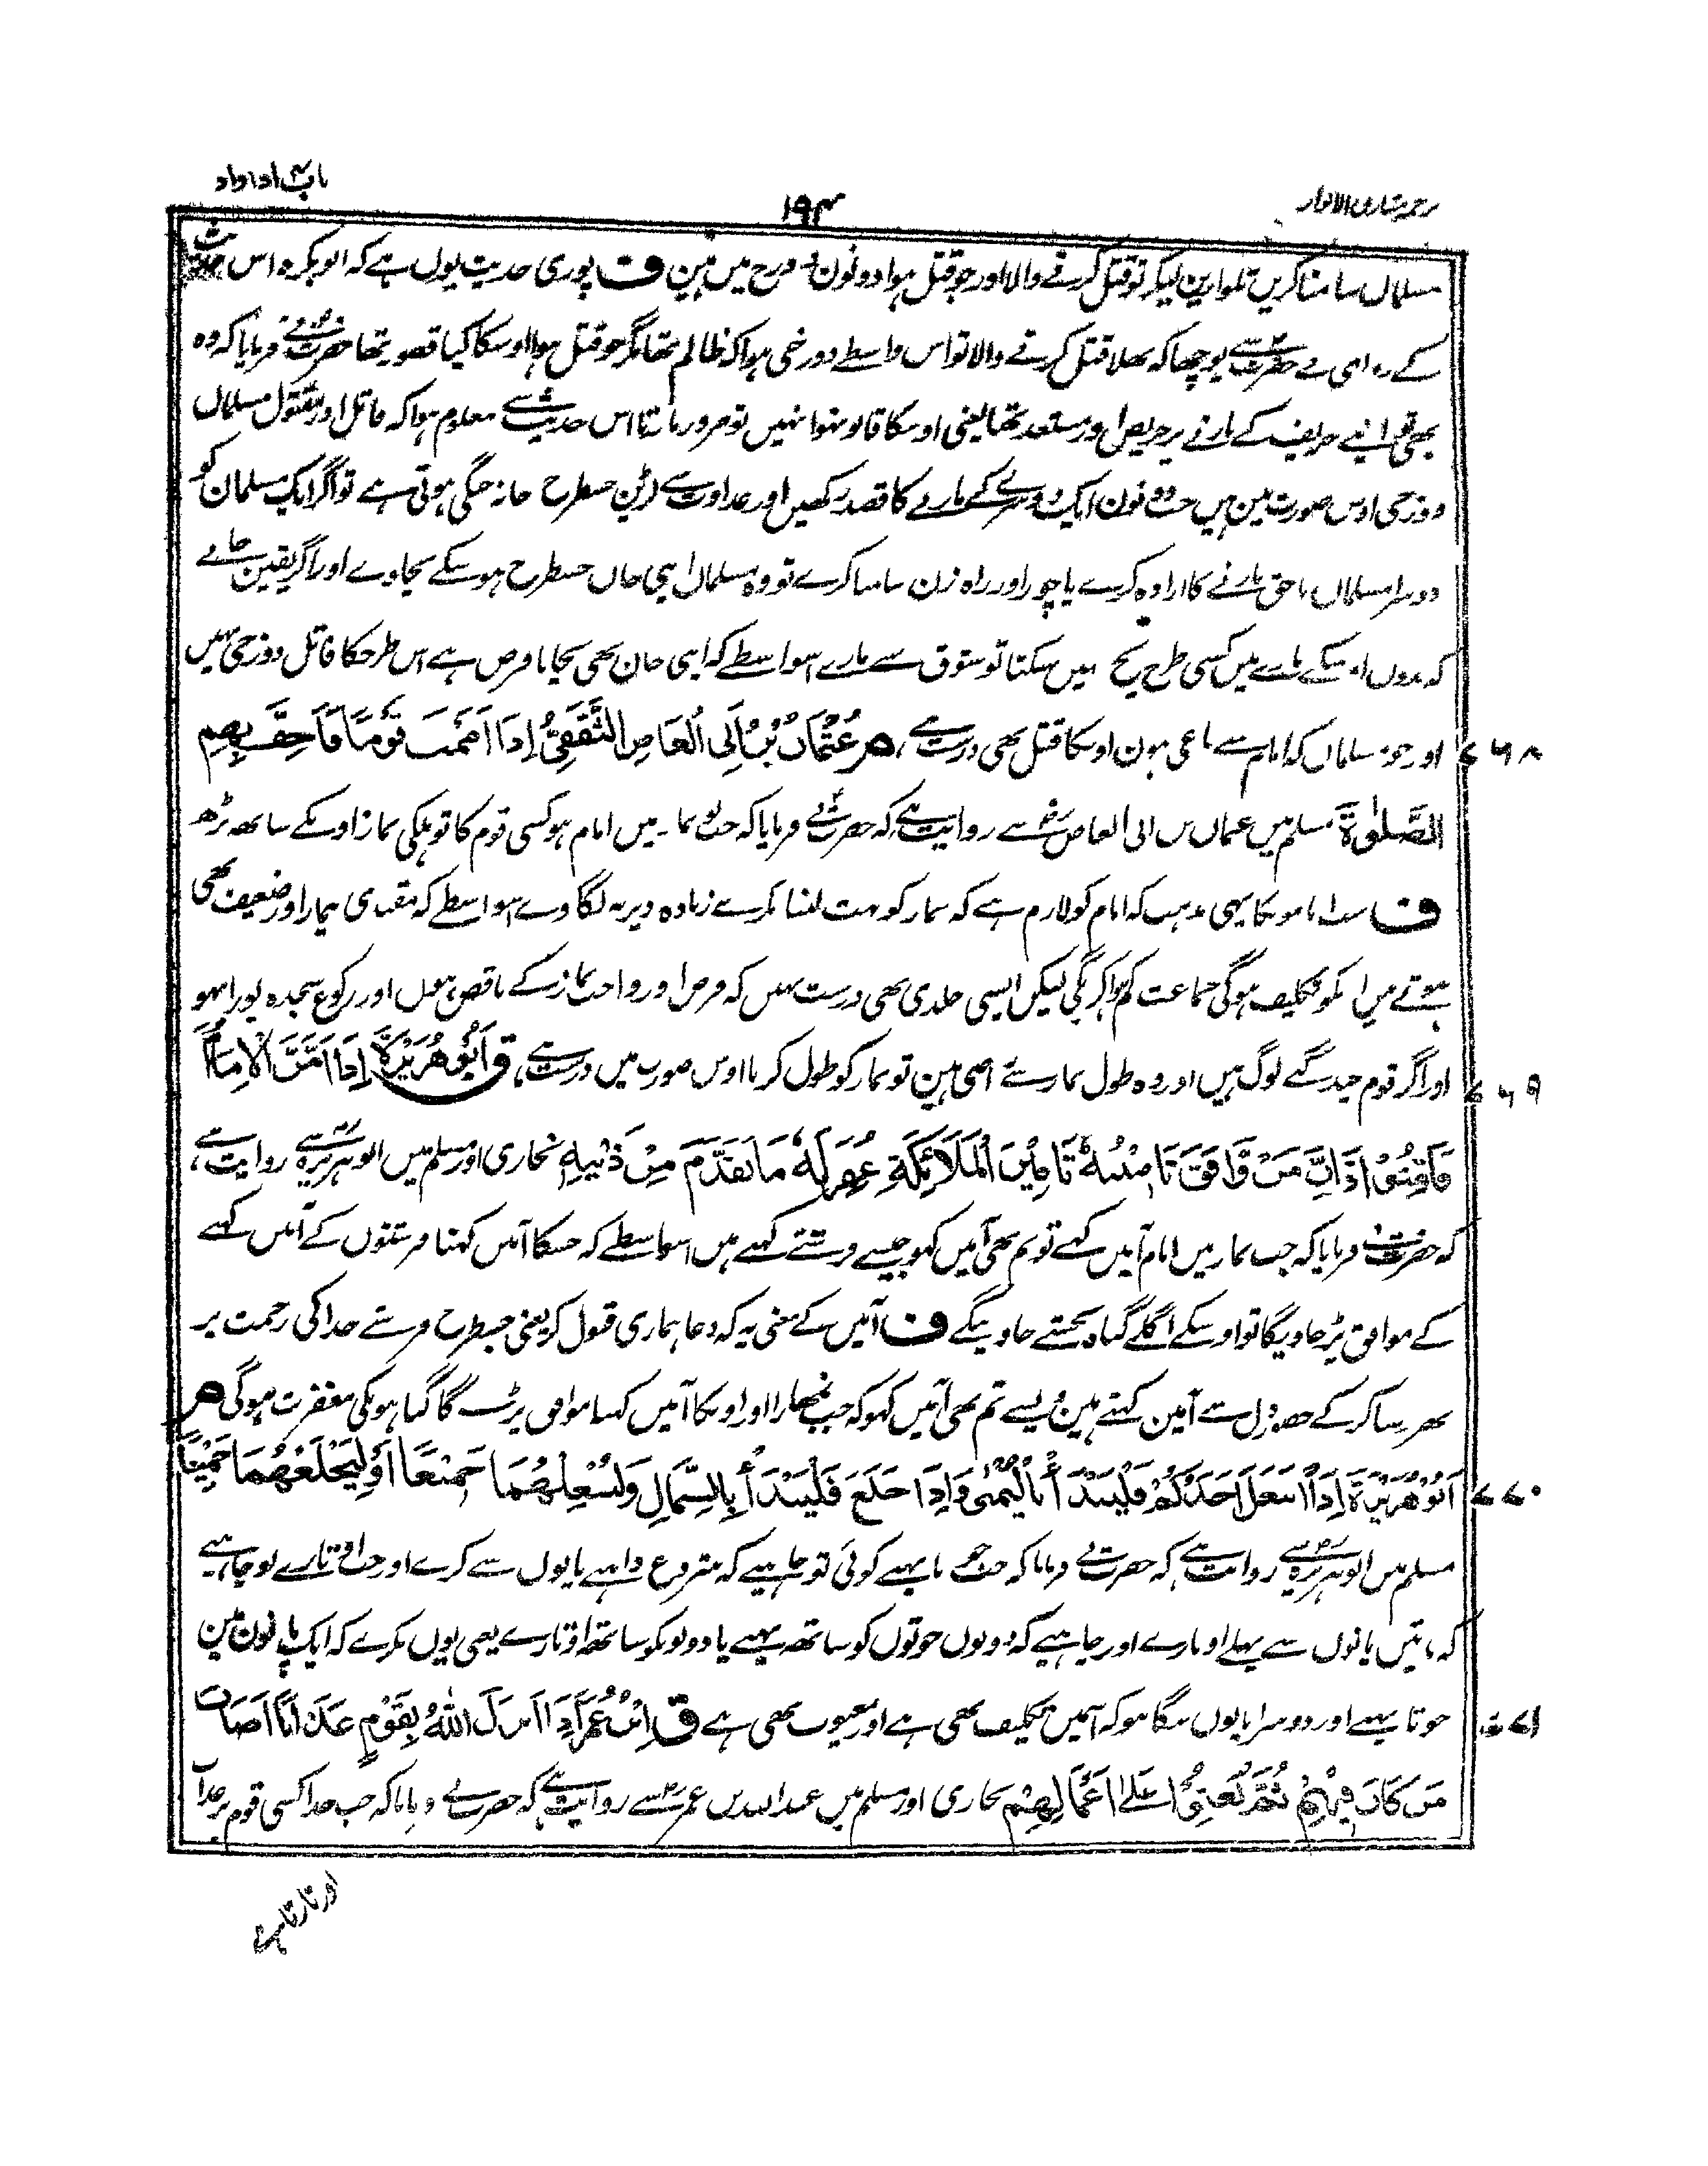 باب اذا واذ
۱۹۴
ترجمہ مشارق الانوار
مسلمان سامنا کریں تلوارین لیکر تو قتل کرنے والا اور جو قتل ہوا دونون دوزخ میں ہین ف پوری حدیث یوں ہے کہ ابو بکرہ اس حدیث
کے راوی نے حضرت سے پوچھا کہ بھلا قتل کرنے والا تو اس واسطے دوزخی ہوا کہ ظالم تھا مگر جو قتل ہوا اوسکا کیا قصور تھا حضرت نے فرمایا کہ وہ
بھی تو اپنے حریف کے مارنے پر حریص اور مستعد تھا یعنی اوسکا قابو نہوا نہیں تو ضرور مارتا اس حدیث سے معلوم ہوا کہ قاتل اور مقتول مسلمان
دوزخی اوس صورت مین ہیں جب دونون ایک دوسرے کے مارنے کا قصد رکھیں اور عداوت سے لڑین جسطرح خانہ جنگی ہوتی ہے تو اگر ایک مسلمان کو
دوسرا مسلمان ناحق مارنے کا ارادہ کرے یا چور اور راہ زن سامنا کرے تو وہ مسلمان اپنی جان جسطرح ہو سکے بچاوے اور اگر یقین جانے
کہ بدوں اوسکے مارے میں کسی طرح بچ نہیں سکتا تو شوق سے مارے اسواسطے کہ اپنی جان بھی بچانا فرض ہے اس طرحکا قاتل دوزخی نہیں
۷۶۸ اور جو مسلمان کہ امام سے باغی ہون اوسکا قتل بھی درست ہے، م عُثْمَانُ بْنُ اَبِی الْعَاصِ الثَّقَفِیُّ اِذَا اَمَمْتَ قَوْمًا فَاَخِفَّ بِهِمِ
الصَّلٰوةَ مسلم میں عثمان بن ابی العاص سے روایت ہے کہ حضرت نے فرمایا کہ جب تو نماز میں امام ہو کسی قوم کا تو ہلکی نماز اونکے ساتھ پڑھ
ف سب اماموں کا یہی مذہب کہ امام کو لازم ہے کہ نماز کو بہت لنبا نکرے زیادہ دیر نہ لگاوے اسواسطے کہ مقتدی بیمار اور ضعیف بھی
ہوتے ہیں انکو تکلیف ہوگی جماعت کم ہوا کریگی لیکن ایسی جلدی بھی درست نہیں کہ فرض اور واجب نماز کے ناقص ہوں اور رکوع سجدہ پورا نہو
۷۶۹ اور اگر قوم چند گنے لوگ ہیں اور وہ طول نماز سے راضی ہین تو نماز کو طول کرنا اوس صورت میں درست ہے، ق اَبُوْ هُرَیْرَةَ اِذَا اَمَّنَ الْاِمَامُ
فَاَمِّنُوْا فَاِنَّ مَنْ وَّافَقَ تَامِیْنُهٗ تَامِیْنَ الْمَلَائِکَةِ غُفِرَ لَهٗ مَا تَقَدَّمَ مِنْ ذَنْبِهِ بخاری اور مسلم میں ابو ہریرہ سے روایت ہے،
کہ حضرت نے فرمایا کہ جب نماز میں امام آمین کہے تو تم بھی آمین کہو جیسے فرشتے کہتے ہیں اسواسطے کہ جسکا آمین کہنا فرشتوں کے آمین کہنے
کے موافق پڑ جاویگا تو اوسکے اگلے گناہ بخشے جاوینگے ف آمین کے معنی یہ کہ دعا ہماری قبول کر یعنی جسطرح فرشتے خدا کی رحمت پر
بھروسا کر کے حضور دل سے آمین کہتے ہین ویسے تم بھی آمین کہو کہ جب تمھارا اور اونکا آمین کہنا موافق پڑے گا گناہونکی مغفرت ہوگی م
۷۷۰ اَبُوْ هُرَیْرَةَ اِذَا انْتَعَلَ اَحَدُکُمْ فَلْیَبْدَأْ بِالْیُمْنٰی وَاِذَا خَلَعَ فَلْیَبْدَأْ بِالشِّمَالِ وَلْیُنْعِلْهُمَا جَمِیْعًا اَوْ لِیَخْلَعْهُمَا جَمِیْعًا
مسلم میں ابو ہریرہ سے روایت ہے کہ حضرت نے فرمایا کہ جب جوتا پہنے کوئی تو چاہیے کہ شروع داہنے پانوں سے کرے اور جب اوتارے تو چاہیے
کہ بائیں پانوں سے پہلے اوتارے اور چاہیے کہ دونوں جوتوں کو ساتھ پہنے یا دونوں کو ساتھ اوتارے یعنی یوں نکرے کہ ایک پانون مین
۷۷۱ جوتا پہنے اور دوسرا پانوں ننگا ہو کہ اسمیں تکلیف بھی ہے اور معیوب بھی ہے ق اِبْنُ عُمَرَ اِذَا اَنْزَلَ اللهُ بِقَوْمٍ عَذَابًا اَصَابَ
مَنْ کَانَ فِیْهِمْ ثُمَّ بُعِثُوْا عَلٰی اَعْمَالِهِمْ بخاری اور مسلم میں عبد اللہ بن عمر سے روایت ہے کہ حضرت نے فرمایا کہ جب خدا کسی قوم پر عذاب
اوتارتا ہے